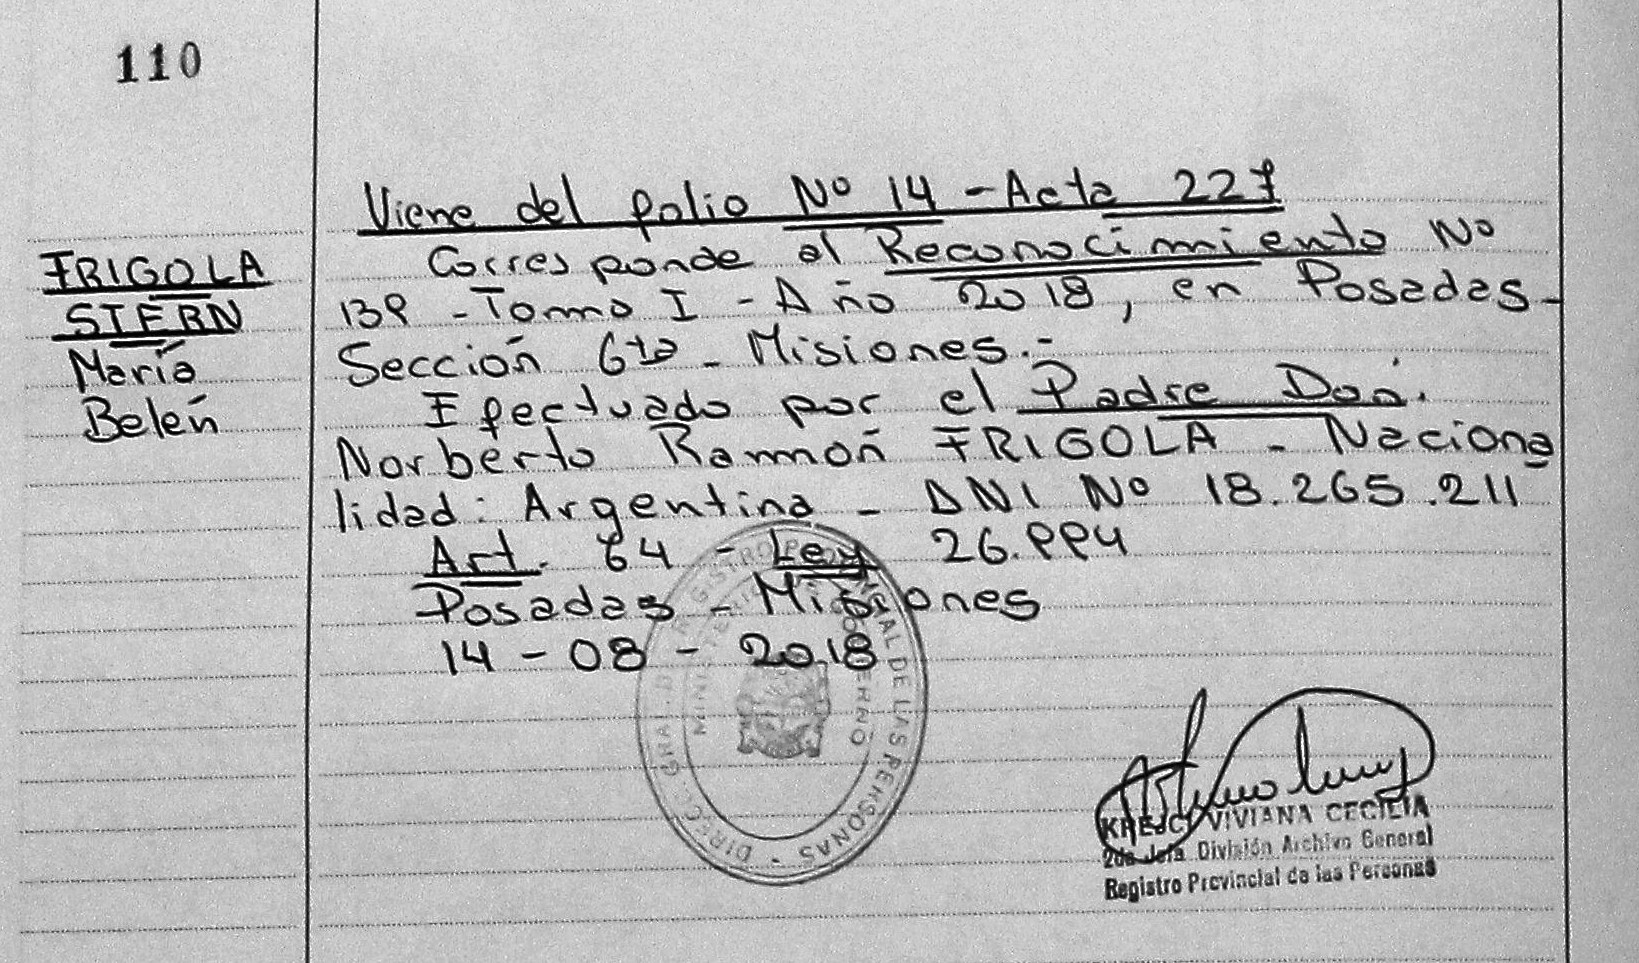 110
FRIGOLA
STERN
María
Belén
Viene del folio Nº 14 - Acta 227
Corresponde al Reconocimiento Nº
139 - Tomo I - Año 2018, en Posadas -
Sección 6ta - Misiones.-
Efectuado por el Padre Don.
Norberto Ramón FRIGOLA - Naciona
lidad: Argentina - DNI Nº 18.265.211
Art. 64 - Ley 26.994
Posadas - Misiones
14 - 08 - 2018
DIREC. GRAL. DEL REGISTRO PROVINCIAL DE LAS PERSONAS
MINISTERIO DE GOBIERNO
KREJCI VIVIANA CECILIA
2da Jefa División Archivo General
Registro Provincial de las Personas